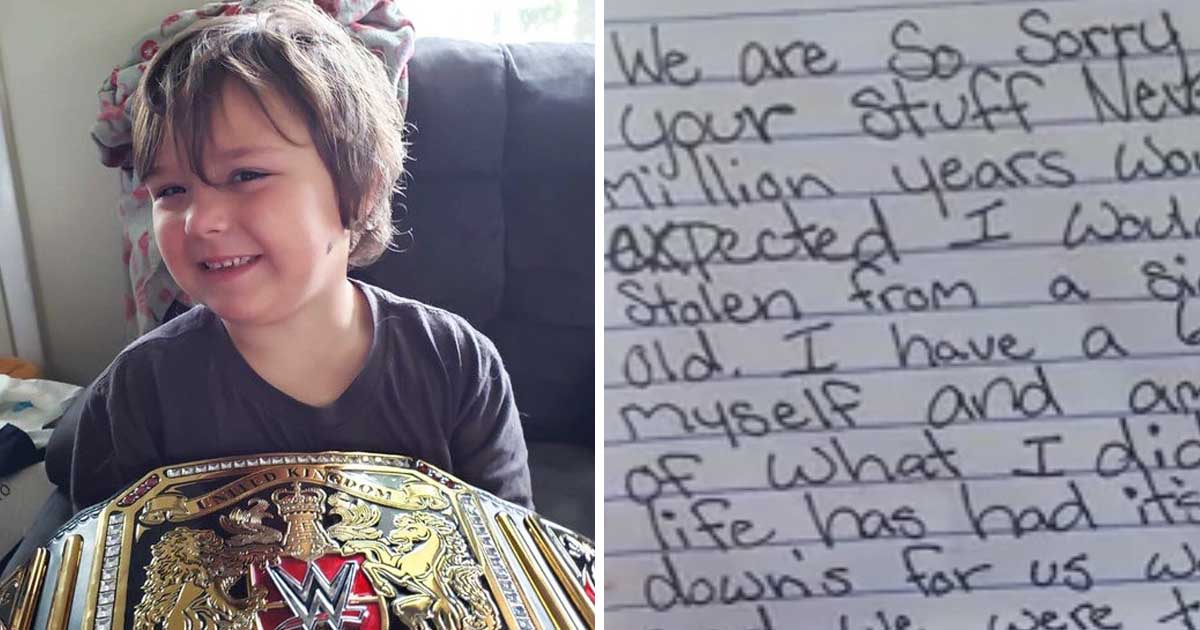 UNITED KINGDOM
W
We are So Sorry
your stuff
million years
expected I
Stolen from a
old. I have a
myself and
of what I
life, has had it's
down's for us
were